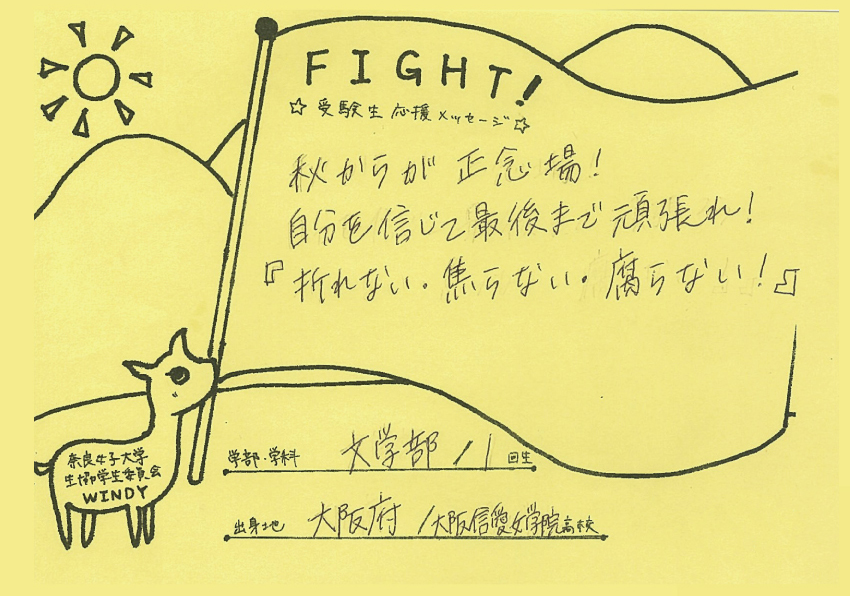 FIGHT!
☆受験生応援メッセージ☆
秋からが正念場!
自分を信じて最後まで頑張れ!
『折れない・焦らない・腐らない!』
学部・学科 文学部/1回生
出身地 大阪府/大阪信愛女学院高校
奈良女子大学
生協学生委員会
WINDY